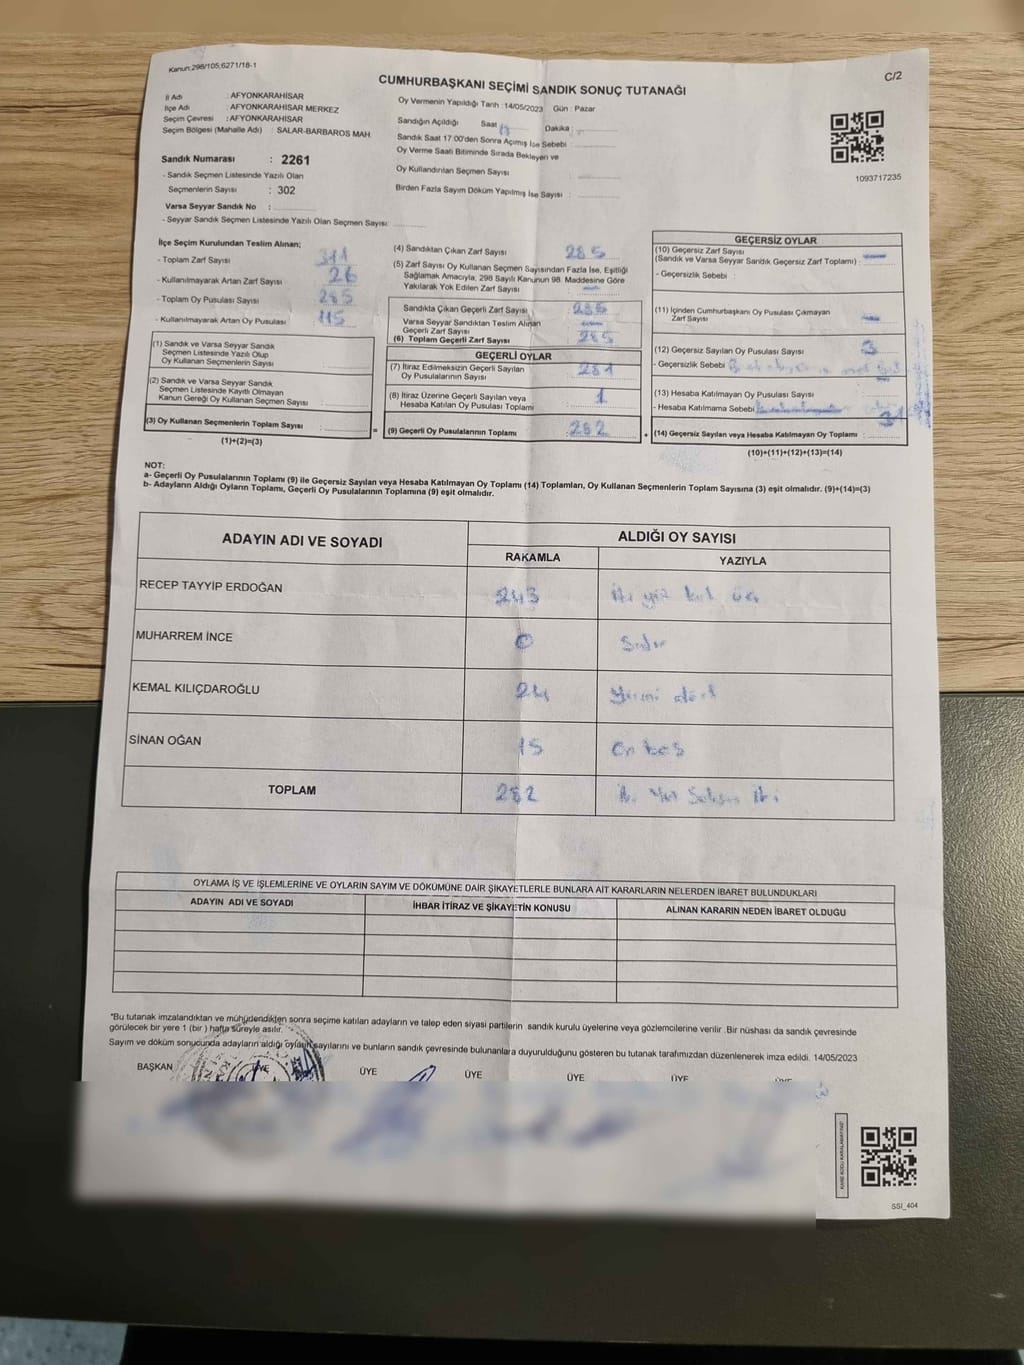 Kanun:298/105;6271/18-1
C/2
CUMHURBAŞKANI SEÇİMİ SANDIK SONUÇ TUTANAĞI
İl Adı : AFYONKARAHİSAR
İlçe Adı : AFYONKARAHİSAR MERKEZ
Seçim Çevresi : AFYONKARAHİSAR
Seçim Bölgesi (Mahalle Adı) : SALAR-BARBAROS MAH.
Sandık Numarası : 2261
- Sandık Seçmen Listesinde Yazılı Olan
Seçmenlerin Sayısı : 302
Varsa Seyyar Sandık No :
- Seyyar Sandık Seçmen Listesinde Yazılı Olan Seçmen Sayısı:
Oy Vermenin Yapıldığı Tarih :14/05/2023 Gün : Pazar
Sandığın Açıldığı Saat Dakika :
Sandık Saat 17:00'den Sonra Açımış İse Sebebi :
Oy Verme Saati Bitiminde Sırada Bekleyen ve
Oy Kullandırılan Seçmen Sayısı
Birden Fazla Sayım Döküm Yapılmış İse Sayısı :
1093717235
İlçe Seçim Kurulundan Teslim Alınan;
- Toplam Zarf Sayısı 311
- Kullanılmayarak Artan Zarf Sayısı 26
- Toplam Oy Pusulası Sayısı
- Kullanılmayarak Artan Oy Pusulası 115
(1) Sandık ve Varsa Seyyar Sandık
Seçmen Listesinde Yazılı Olup
Oy Kullanan Seçmenlerin Sayısı
(2) Sandık ve Varsa Seyyar Sandık
Seçmen Listesinde Kayıtlı Olmayan
Kanun Gereği Oy Kullanan Seçmen Sayısı
(3) Oy Kullanan Seçmenlerin Toplam Sayısı
(1)+(2)=(3)
(4) Sandıktan Çıkan Zarf Sayısı 285
(5) Zarf Sayısı Oy Kullanan Seçmen Sayısından Fazla İse, Eşitliği
Sağlamak Amacıyla, 298 Sayılı Kanunun 98. Maddesine Göre
Yakılarak Yok Edilen Zarf Sayısı :
Sandıkta Çıkan Geçerli Zarf Sayısı 285
Varsa Seyyar Sandıktan Teslim Alınan
Geçerli Zarf Sayısı
(6) Toplam Geçerli Zarf Sayısı 285
GEÇERLİ OYLAR
(7) İtiraz Edilmeksizin Geçerli Sayılan
Oy Pusulalarının Sayısı 281
(8) İtiraz Üzerine Geçerli Sayılan veya
Hesaba Katılan Oy Pusulası Toplamı 1
= (9) Geçerli Oy Pusulalarının Toplamı 282
GEÇERSİZ OYLAR
(10) Geçersiz Zarf Sayısı
(Sandık ve Varsa Seyyar Sandık Geçersiz Zarf Toplamı) :
- Geçersizlik Sebebi :
(11) İçinden Cumhurbaşkanı Oy Pusulası Çıkmayan
Zarf Sayısı
(12) Geçersiz Sayılan Oy Pusulası Sayısı 3
- Geçersizlik Sebebi
(13) Hesaba Katılmayan Oy Pusulası Sayısı
- Hesaba Katılmama Sebebi
+ (14) Geçersiz Sayılan veya Hesaba Katılmayan Oy Toplamı :
(10)+(11)+(12)+(13)=(14)
NOT:
a- Geçerli Oy Pusulalarının Toplamı (9) ile Geçersiz Sayılan veya Hesaba Katılmayan Oy Toplamı (14) Toplamları, Oy Kullanan Seçmenlerin Toplam Sayısına (3) eşit olmalıdır. (9)+(14)=(3)
b- Adayların Aldığı Oyların Toplamı, Geçerli Oy Pusulalarının Toplamına (9) eşit olmalıdır.
ADAYIN ADI VE SOYADI ALDIĞI OY SAYISI
RAKAMLA YAZIYLA
RECEP TAYYİP ERDOĞAN 243 iki yüz kırk üç
MUHARREM İNCE 0 Sıfır
KEMAL KILIÇDAROĞLU 24 Yirmi dört
SİNAN OĞAN 15 On beş
TOPLAM 282 İki Yüz Seksen iki
OYLAMA İŞ VE İŞLEMLERİNE VE OYLARIN SAYIM VE DÖKÜMÜNE DAİR ŞİKAYETLERLE BUNLARA AİT KARARLARIN NELERDEN İBARET BULUNDUKLARI
ADAYIN ADI VE SOYADI İHBAR İTİRAZ VE ŞİKAYETİN KONUSU ALINAN KARARIN NEDEN İBARET OLDUĞU
"Bu tutanak imzalandıktan ve mühürlendikten sonra seçime katılan adayların ve talep eden siyasi partilerin sandık kurulu üyelerine veya gözlemcilerine verilir .Bir nüshası da sandık çevresinde
görülecek bir yere 1 (bir ) hafta süreyle asılır.
Sayım ve döküm sonucunda adayların aldığı oyların sayılarını ve bunların sandık çevresinde bulunanlara duyurulduğunu gösteren bu tutanak tarafımızdan düzenlenerek imza edildi. 14/05/2023
BAŞKAN ÜYE ÜYE ÜYE ÜYE ÜYE ÜYE
KARE KODU KARALAMAYINIZ!
SSI_404